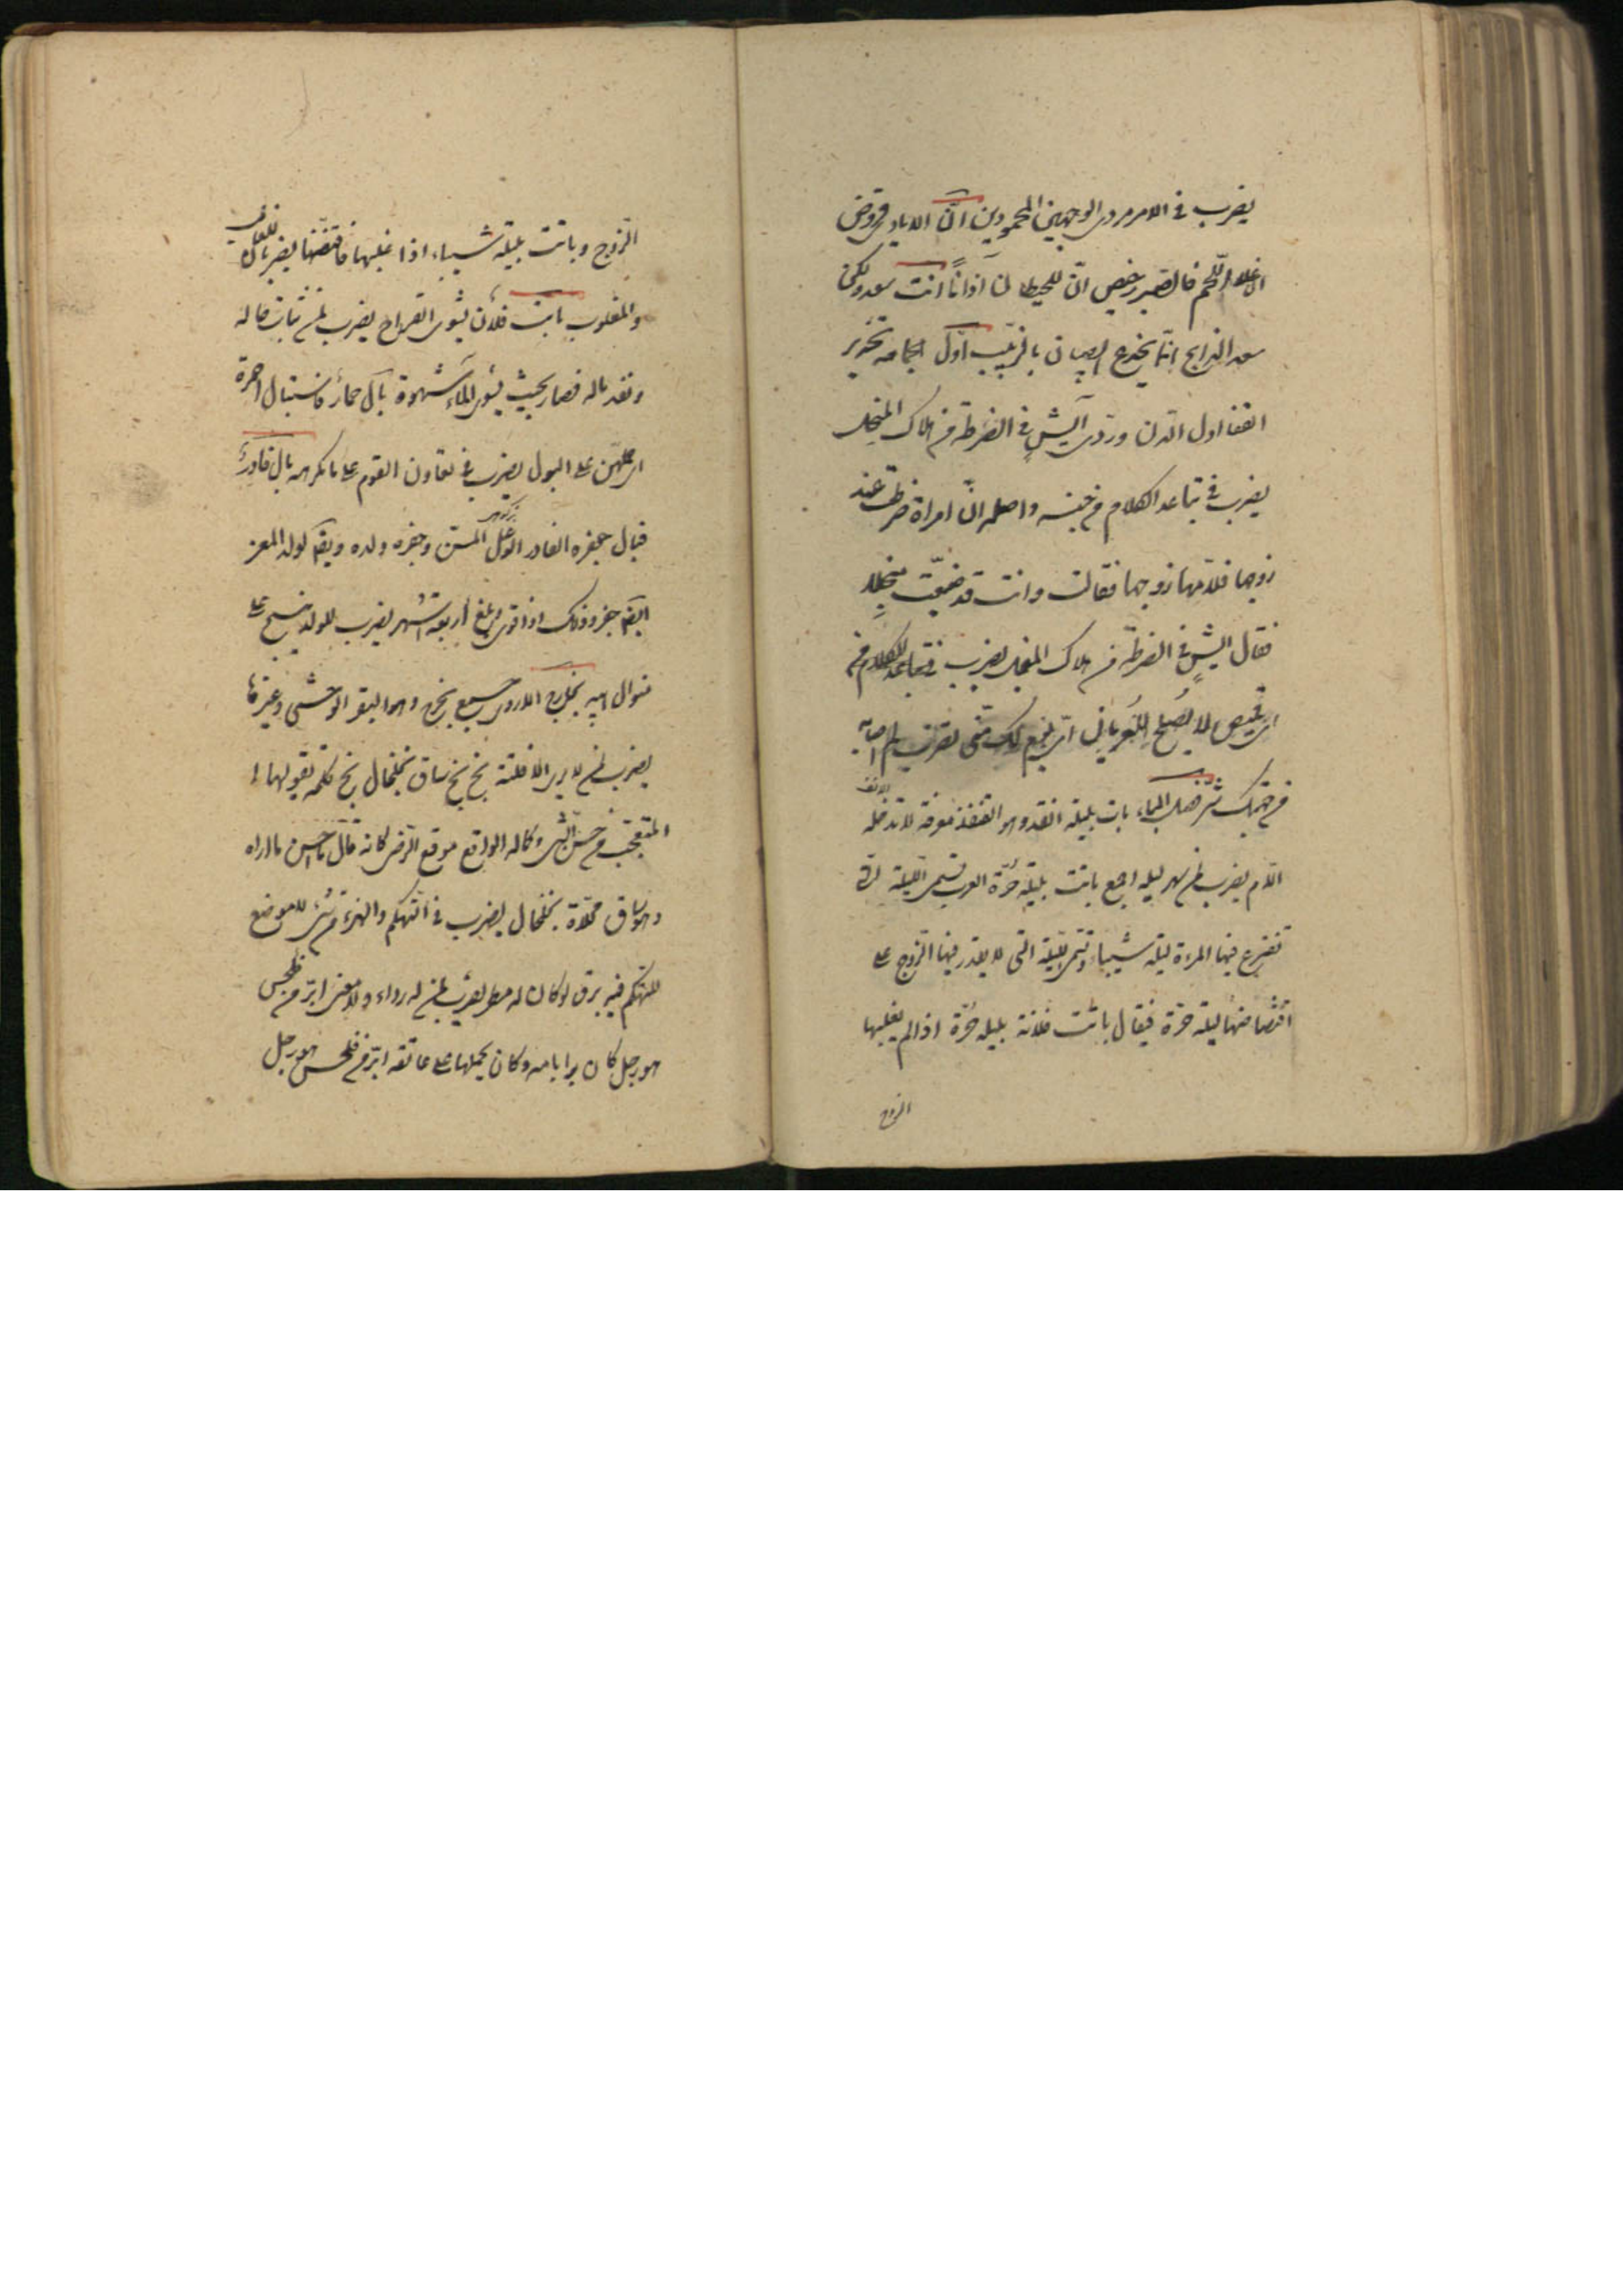 يضرب فى الامر دى الوجهين المحمودين انّ الايادى قروض
ان غلا اللحم فالصبر رخيص انّ للحيطان آذانًا انت سعد ولكن
سعد الذابح انّما يخدع الصبيان بالزبيب اوّل الحجامه تحدير
القفا اول الدن دردى ايش فى الضرطة من هلاك المنجل
يضرب فى تباعد الكلام من جنسه واصله انّ امراة ضرطت عند
زوجها فلامها زوجها فقالت وانت قد ضيّعت منجلا
فقال ايش فى الضرطة من هلاك المنجل يضرب فى تباعد الكلام من
اى قميص لا يصلح للعريان
بات بليلة انقد وهو القنفذ معرفة لا تدخله
اللام يضرب لمن سهر ليله اجمع باتت بليلة حرّة العرب تسمى الليلة التى
تفترع فيها المرءة ليلة شيباء وتسمى الليلة التى لا يقدر فيها الزوج على
افتضاضها ليلة حرة فيقال باتت فلانة بليلة حرّة اذا لم يغلبها
الزوج
الزوج وباتت بليلة شيباء اذا غلبها فافتضّها يضربان للغالب
والمغلوب بات فلان يشوى القراح يضرب لمن ثابت حاله
ونفد ماله فصار بحيث يشوى الماء شهوة بال حمار فاستبال احمرة
اى حملهنّ على البول يضرب فى تعاون القوم على ما تكرهه بال فادر
فبال جفره الفادر الوعل المسن وجفره ولده ويقم لولد المعز
ايضم جفر وذلك اذا قوى وبلغ اربعة اشهر يضرب للولد ينسج على
منوال ابيه بخارج الاروى وهو البقر الوحشى وغيرها
يضرب لمن لا يرى الا فلتة بخ بخ ساق بخلخال بخ كلمة يقولها
المتعجّب من حسن الشى وكماله الواقع موقع الرضى كانه قال ما احسن ما اراه
وهو ساق محلّاة بخلخال يضرب فى التهكم والهزء من شئ لا موضع
للتهكم فيه برق لو كان له مطر يضرب لمن له رواء ولا معنى ابرّ من فلحس
هو رجل كان برا بامه وكان يحملها على عاتقه ابرّ من فلحس هو رجل